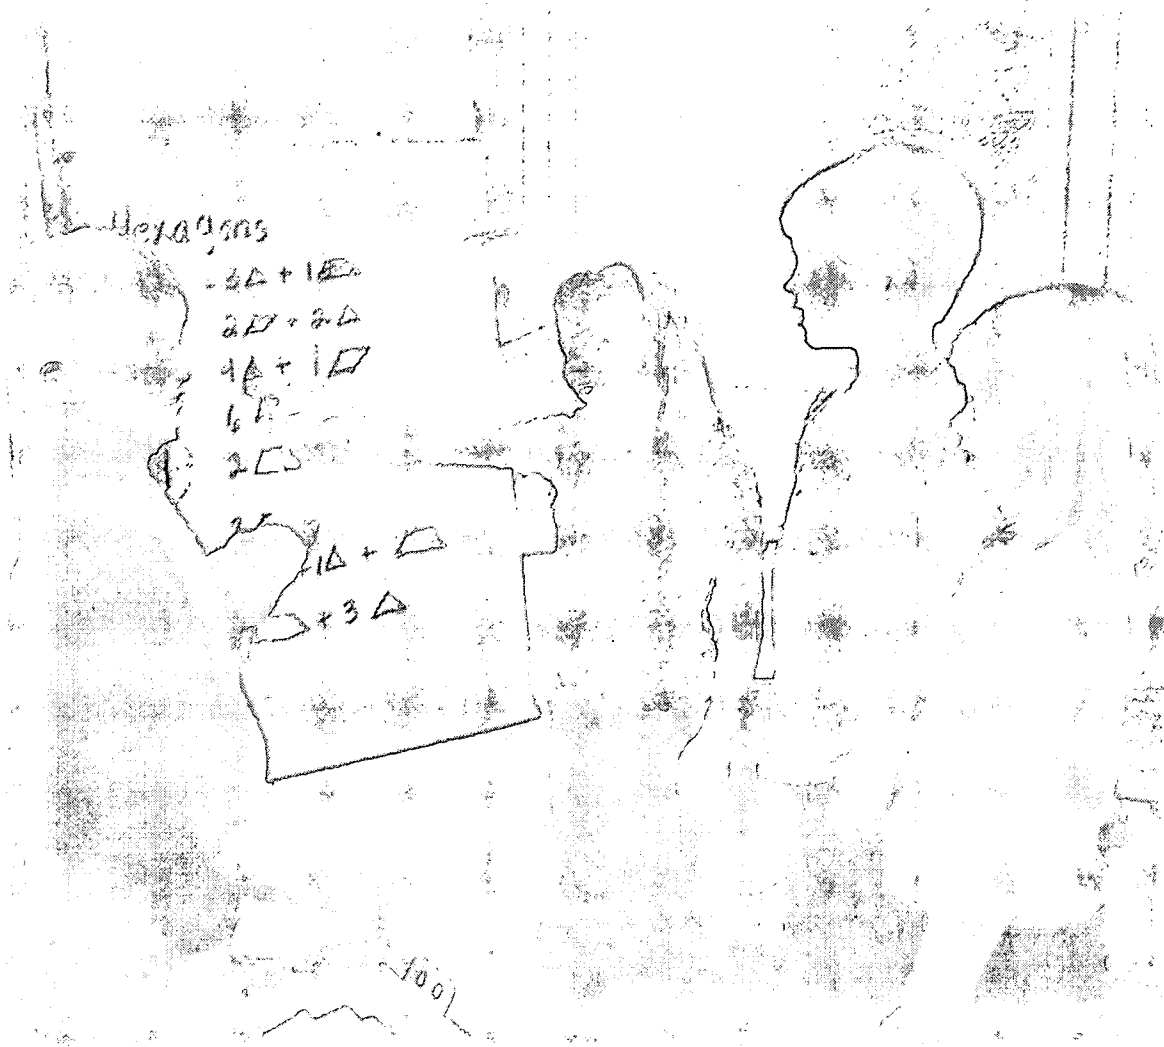 Hexagons
3△ + 1⏢
2▱ + 2△
4△ + 1▱
6
2⏢
1△ + ⏢
⏢ + 3 △
100